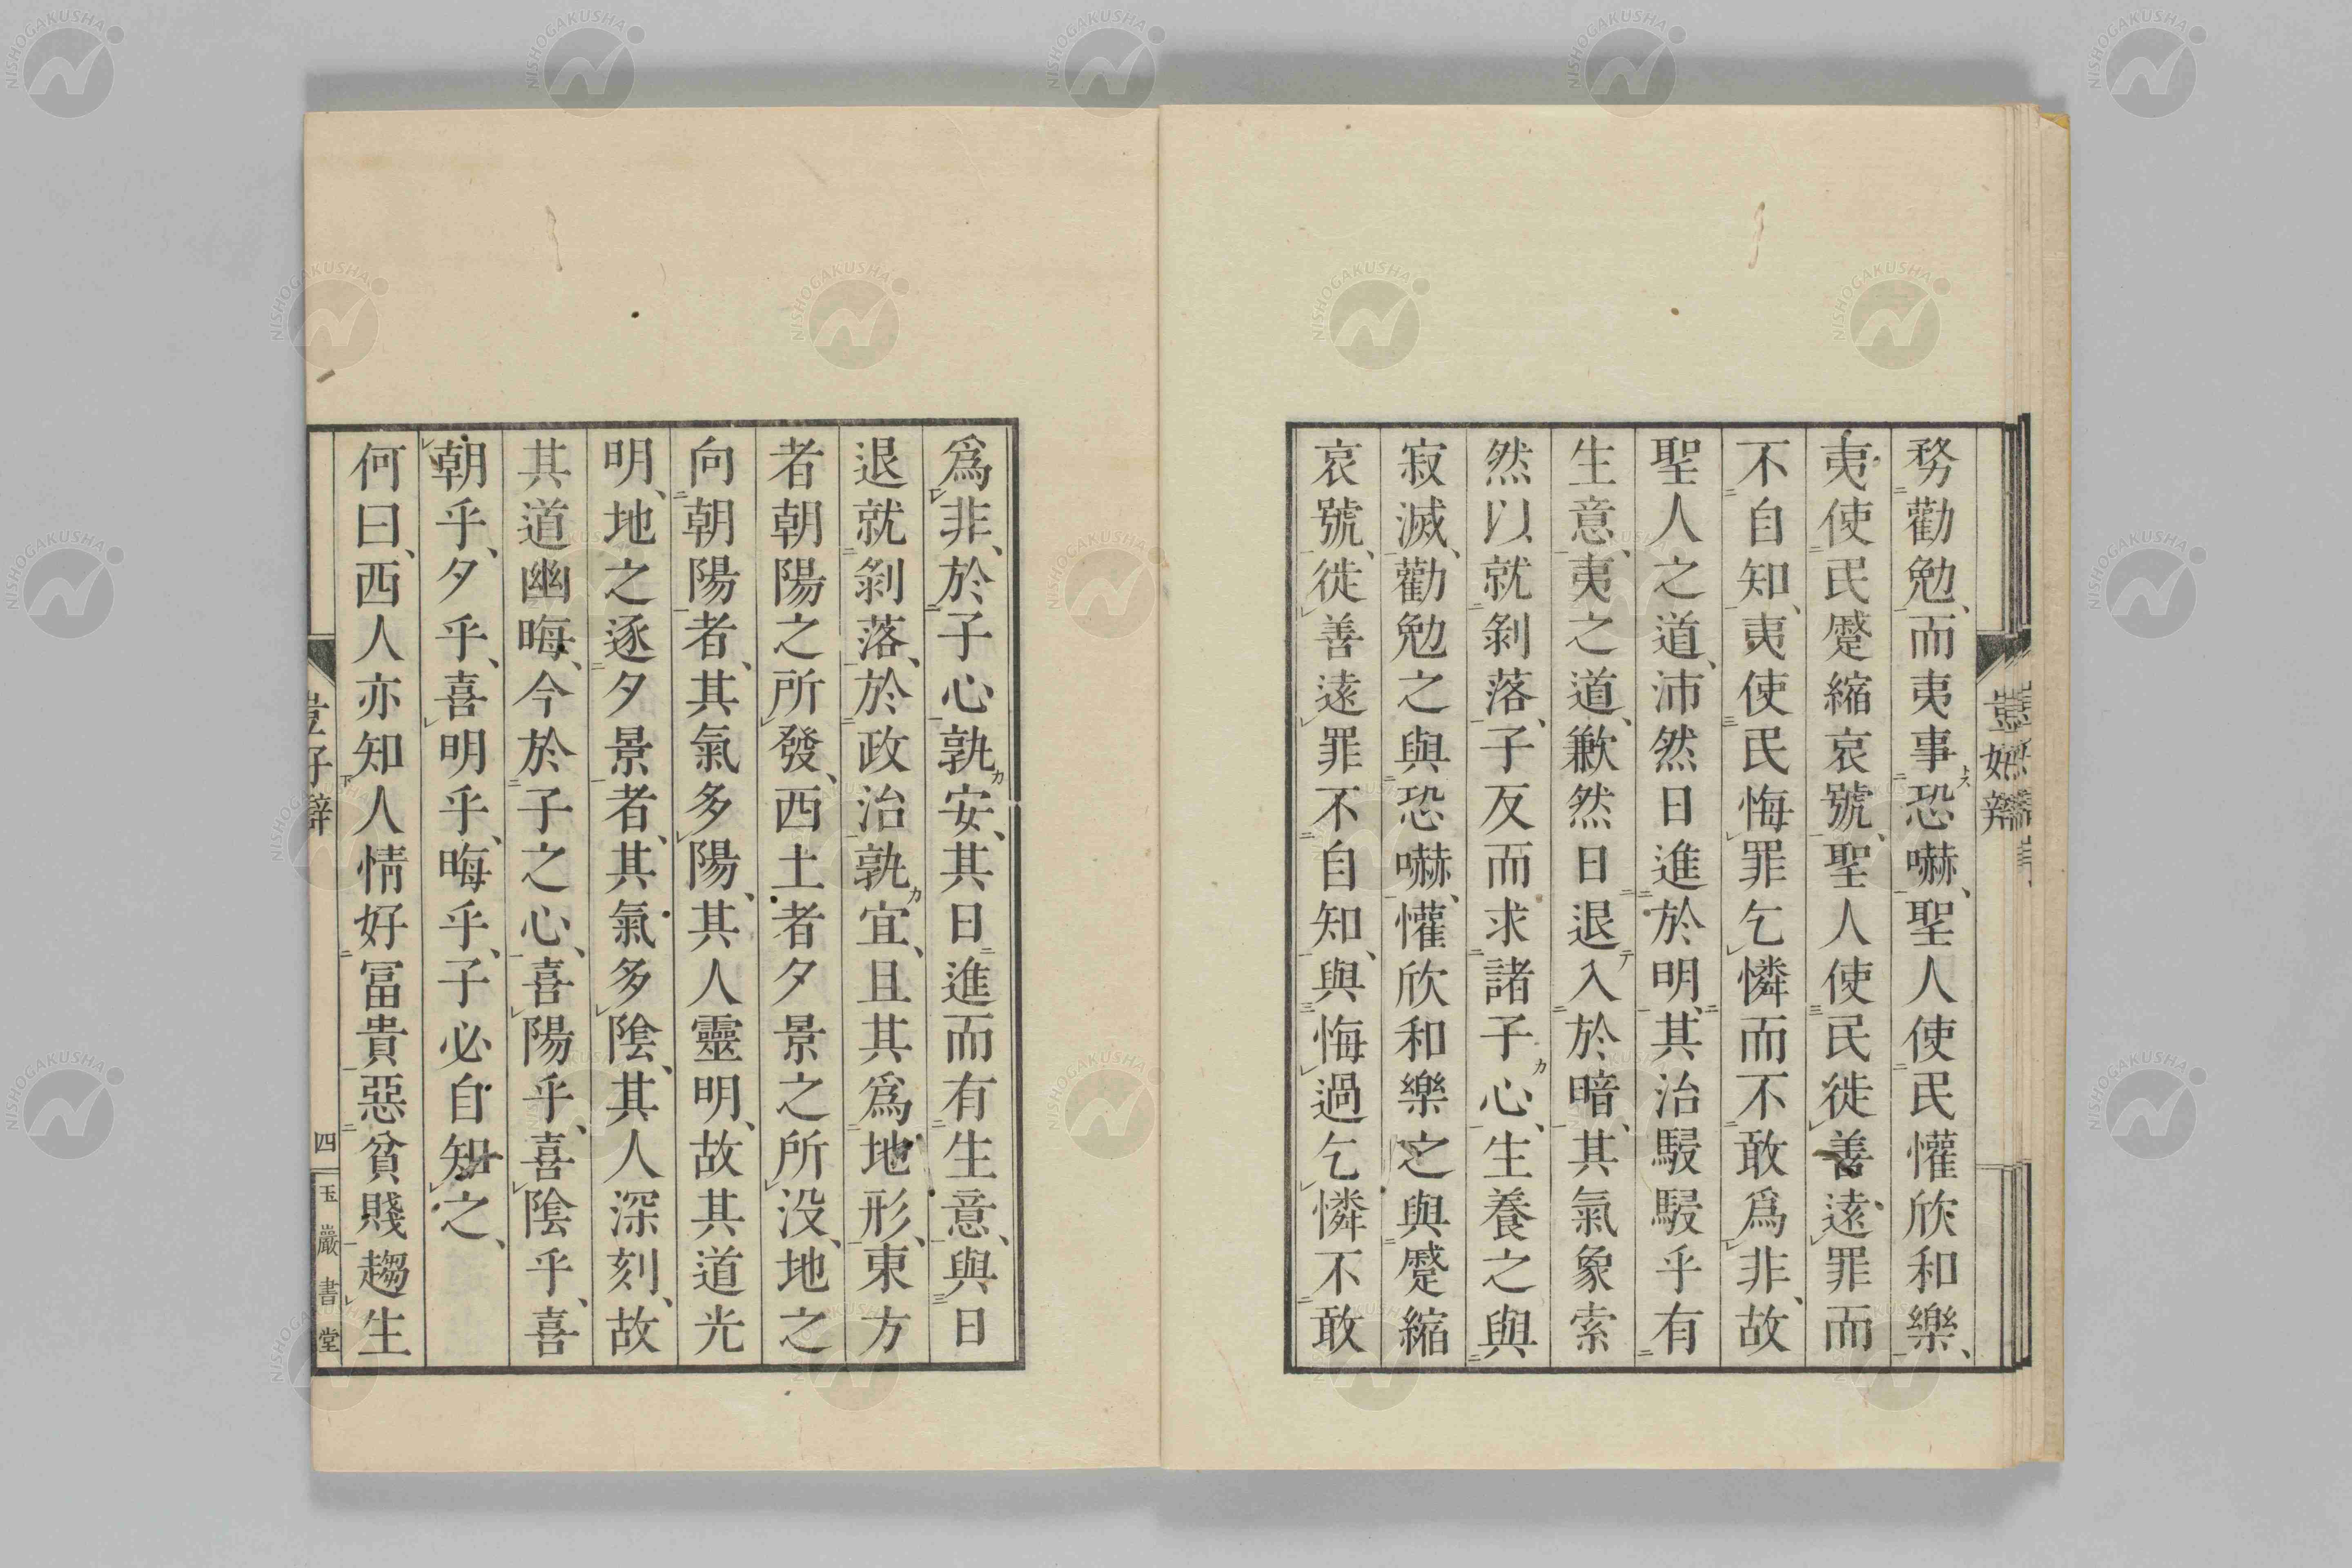 務勸勉、而夷事恐嚇、聖人使民懽欣和樂、
夷使民蹙縮哀號、聖人使民徙善遠罪而
不自知、夷使民悔罪乞憐而不敢爲非、故
聖人之道、沛然日進於明、其治駸駸乎有
生意、夷之道、歉然日退入於暗、其氣象索
然以就剝落、子反而求諸子心、生養之與
寂滅、勸勉之與恐嚇、懽欣和樂之與蹙縮
哀號、徙善遠罪不自知、與悔過乞憐不敢
爲非、於子心孰安、其日進而有生意、與日
退就剝落、於政治孰宜、且其爲地形、東方
者朝陽之所發、西土者夕景之所没、地之
向朝陽者、其氣多陽、其人靈明、故其道光
明、地之逐夕景者、其氣多陰、其人深刻、故
其道幽晦、今於子之心、喜陽乎、喜陰乎、喜
朝乎、夕乎、喜明乎、晦乎、子必自知之、
何曰、西人亦知人情好冨貴惡貧賤趨生
四
玉巖書堂
NISHOGAKUSHA